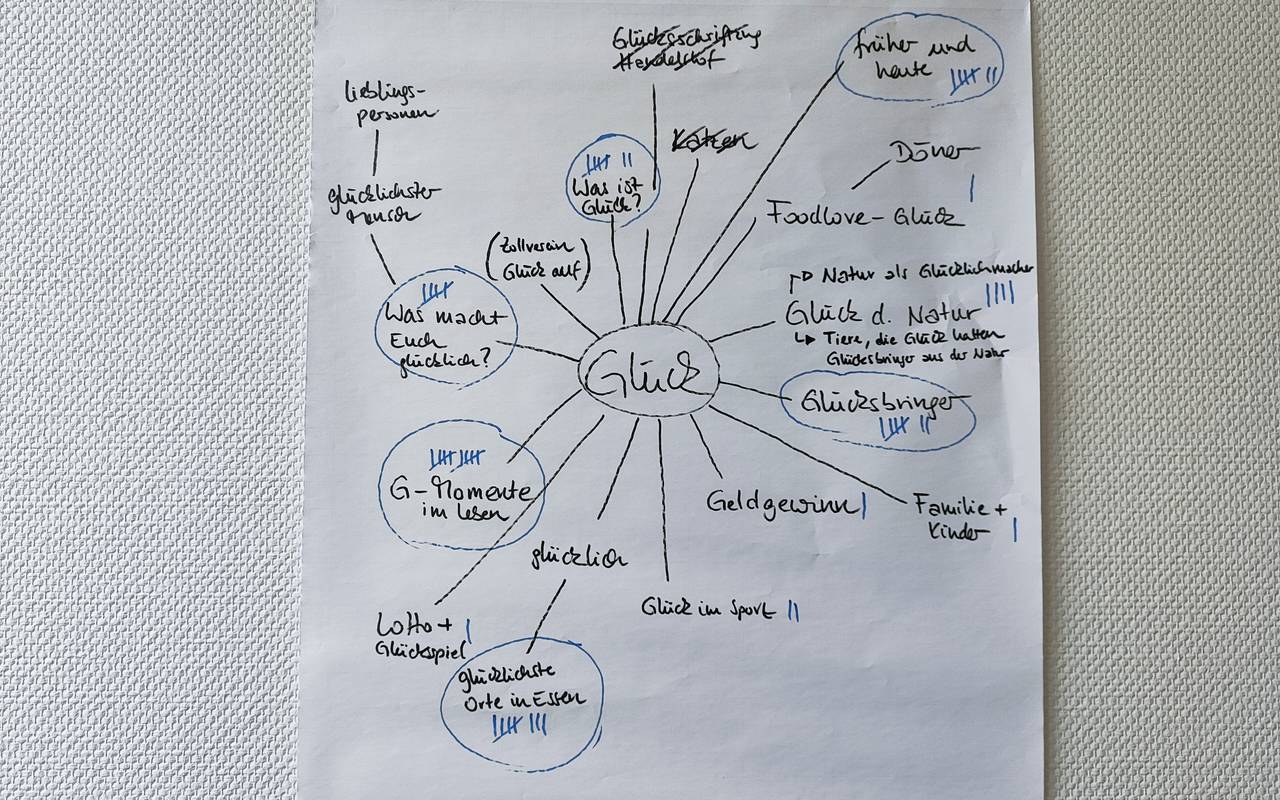 Glücksschriftzug
Handelshof
früher und
heute
Lieblings-
personen
Katzen
Döner
Was ist
Glück?
glücklichster
Mensch
Foodlove-Glück
(Zollverein
Glück auf)
Natur als Glücklichmacher
Glück d. Natur
Tiere, die Glück hatten
Glücksbringer aus der Natur
Was macht
Euch
glücklich?
Glück
Glücksbringer
G-Momente
im Leben
Geldgewinn
Familie +
Kinder
glücklich
Glück im Sport
Lotto +
Glücksspiel
glücklichste
Orte in Essen